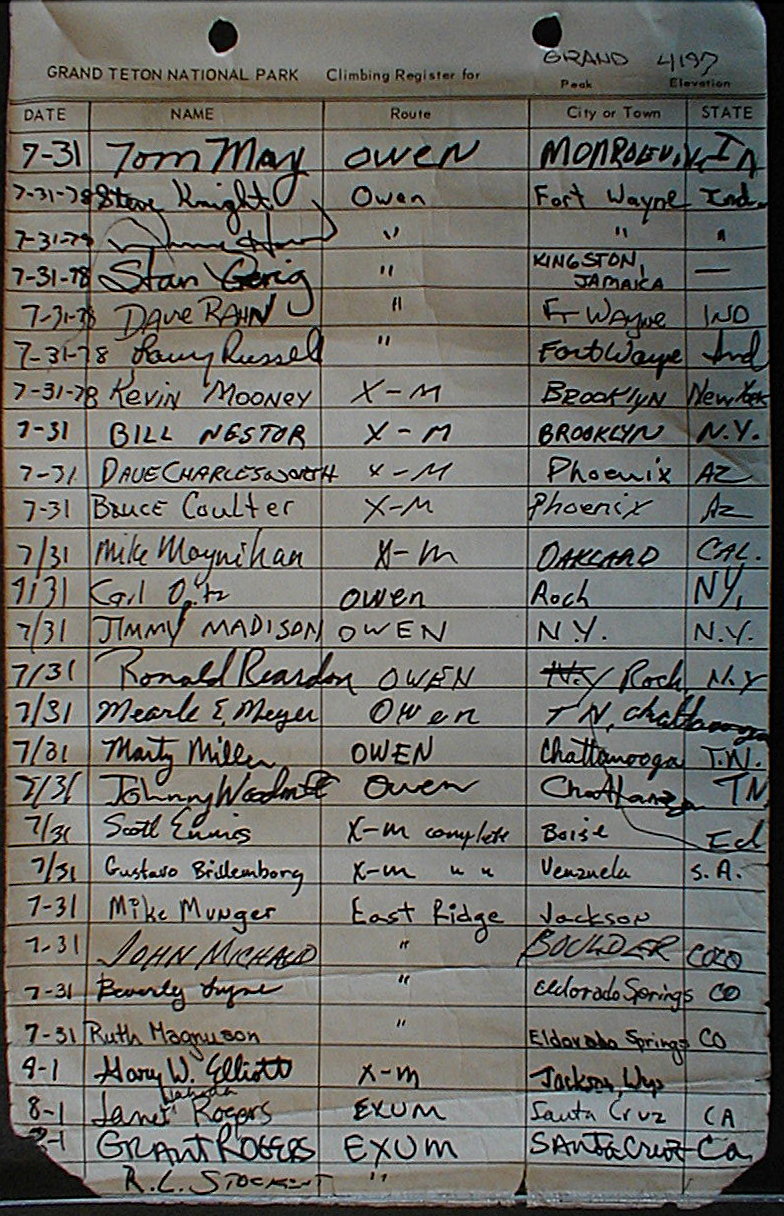 GRAND 4197
GRAND TETON NATIONAL PARK Climbing Register for Peak Elevation
DATE NAME Route City or Town STATE
7-31 Tom May OWEN MONROEV. IN
7-31-78 Steve Knight Owen Fort Wayne Ind.
7-31-78 " " "
7-31-78 Stan Gerig " KINGSTON, JAMAICA —
7-31-78 DAVE RAHN " Ft Wayne IND
7-31-78 Larry Russell " Fort Wayne Ind
7-31-78 KEVIN MOONEY X-M BROOKLYN New York
7-31 BILL NESTOR X-M BROOKLYN N.Y.
7-31 DAVE CHARLESWORTH X-M Phoenix AZ
7-31 BRUCE Coulter X-M Phoenix AZ
7/31 Mike Moynihan X-M OAKLAND CAL.
7/31 Owen Roch NY,
7/31 JIMMY MADISON OWEN N.Y. N.Y.
7/31 Ronald Reardon OWEN N.Y Rock N.Y
7/31 Mearle E. Meyer Owen TN, Chattanooga
7/31 Marty Miller OWEN Chattanooga T.N.
7/31 Johnny Owen Chattanooga TN
7/31 Scott Ennis X-M complete Boise Ed
7/31 Gustavo Brillembourg X-M " " Venzuela S.A.
7-31 Mike Munger East Ridge Jackson
7-31 JOHN MICHAUD " BOULDER COLO
7-31 Beverly " Eldorado Springs CO
7-31 Ruth Magnuson " Eldorado Springs CO
8-1 Gary W. Elliott X-M Jackson, Wyo
8-1 Janet Rogers EXUM Santa Cruz CA
8-1 GRANT ROGERS EXUM SANTA Cruz Ca.
R.L. "